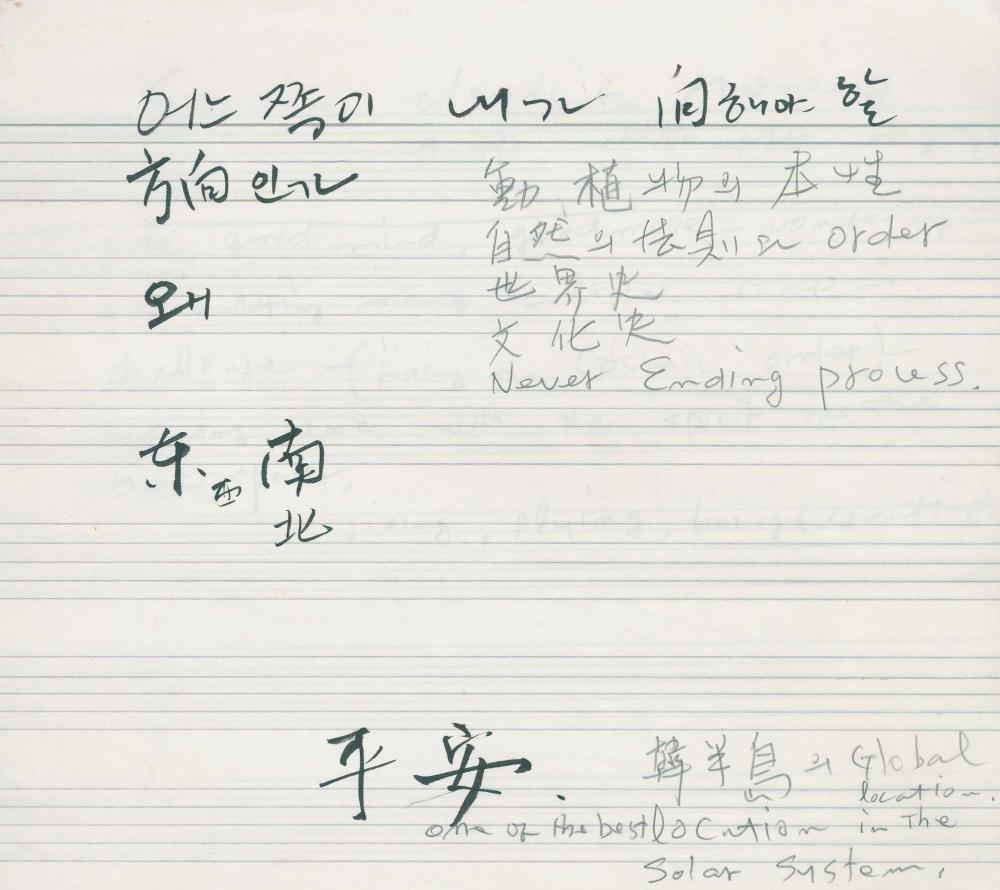 어느 쪽이 내가 向해야 할
方向인가
動, 植物의 本性
自然의 法則과 order
世界史
文化史
Never Ending process.
왜
东. 西 南
北
平安.
韓半島의 Global
location.
one of the best location in The
Solar System.